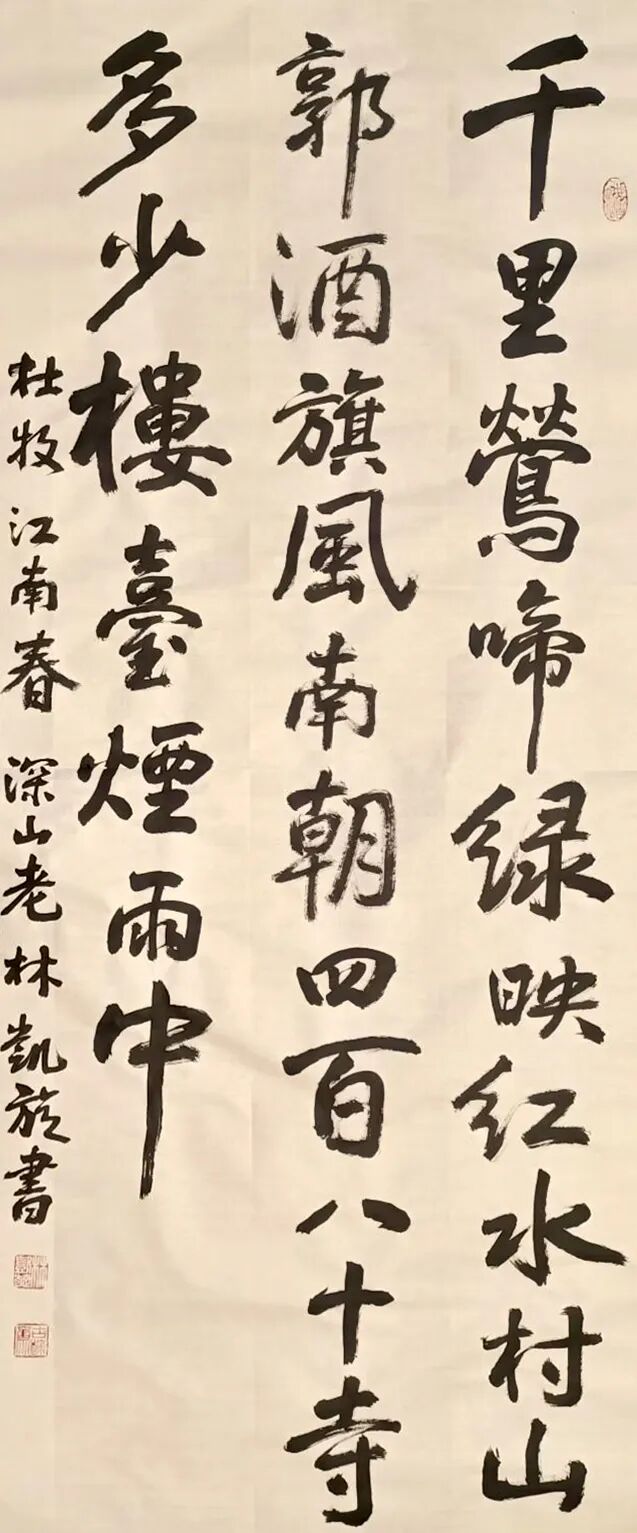 千里鶯啼绿映红水村山
郭酒旗風南朝四百八十寺
多少樓臺煙雨中
杜牧江南春深山老林凱旋書